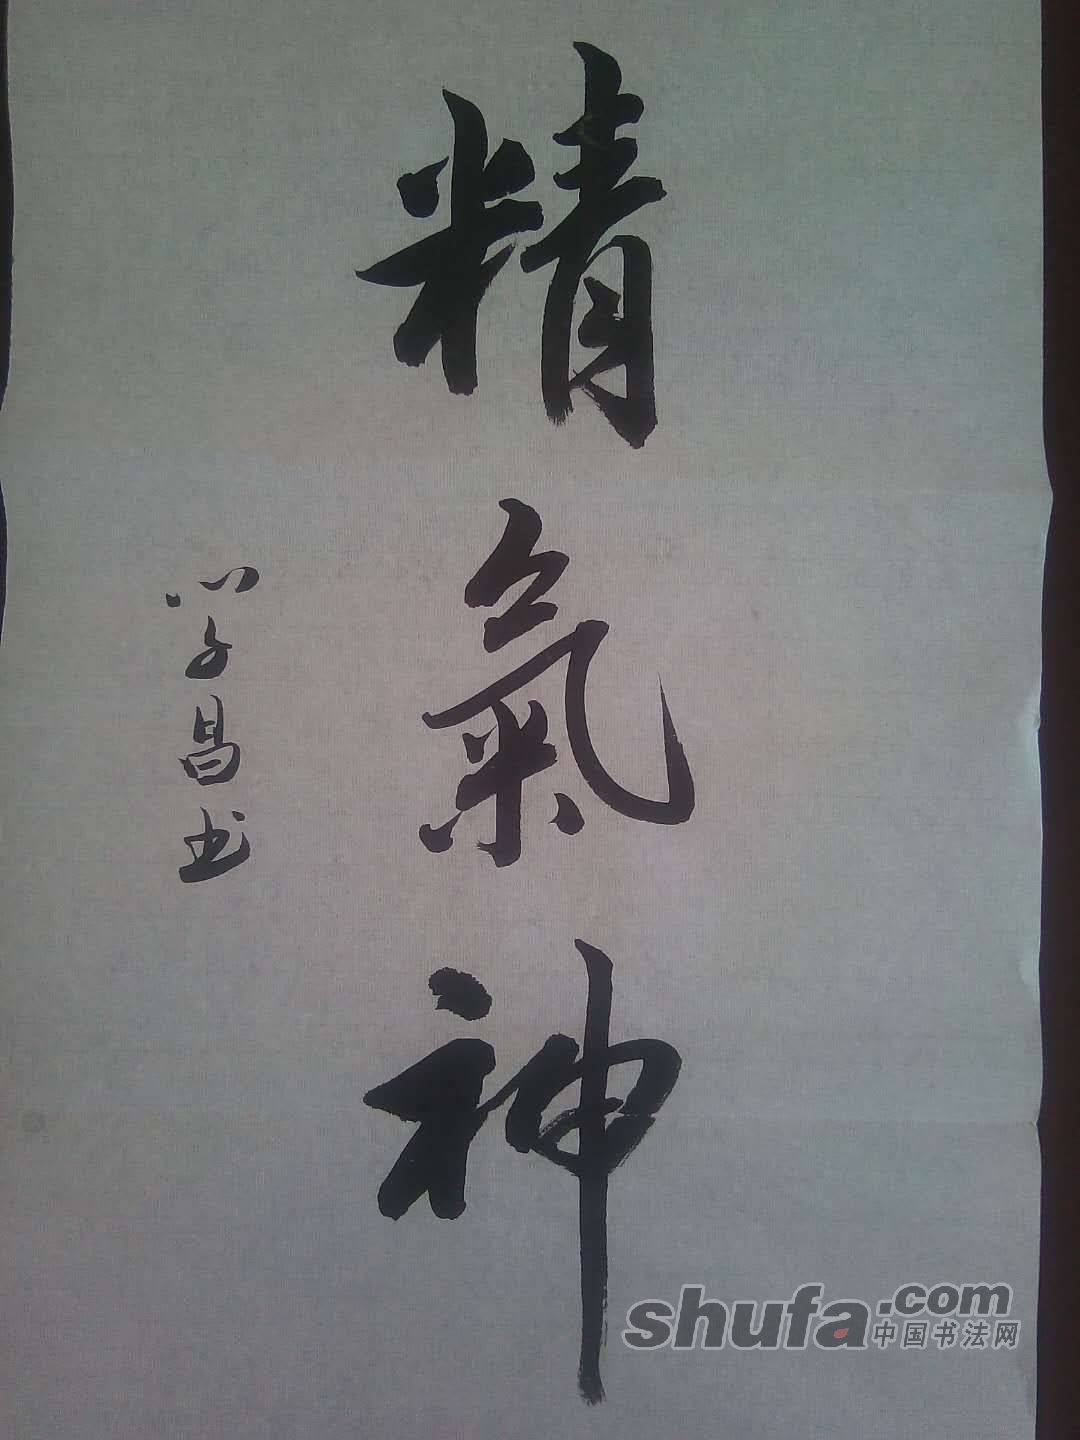 精氣神
学昌书
shufa.com
中国书法网